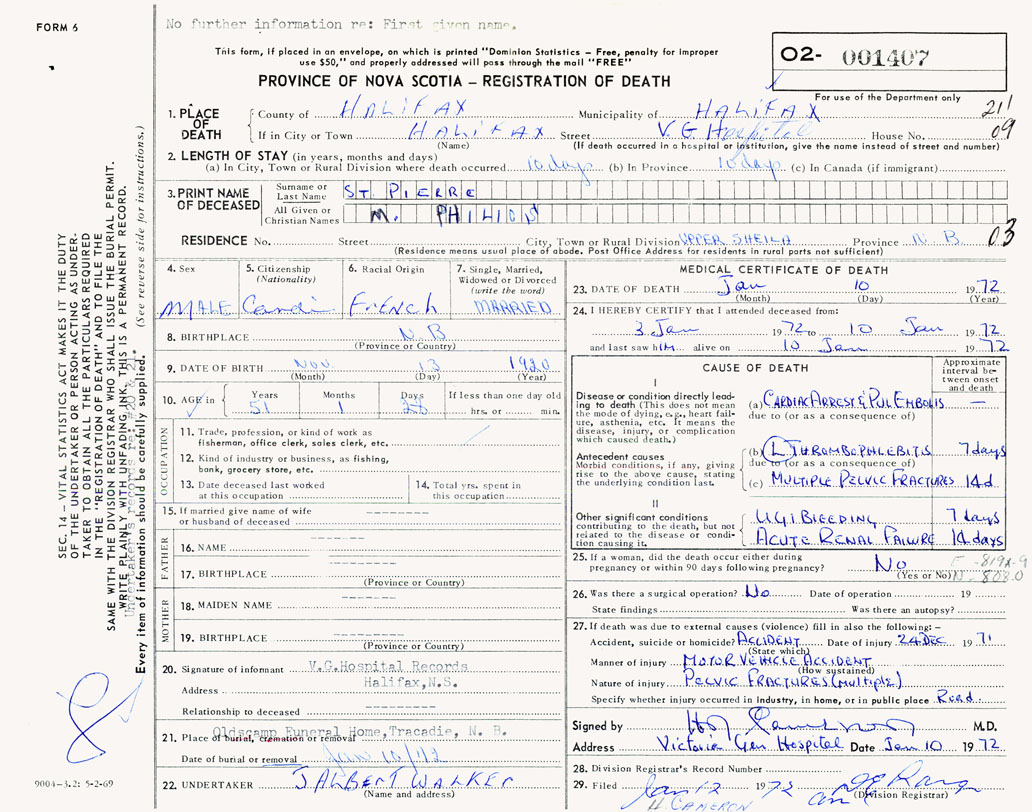 FORM 6
No further information re: First given name.
This form, if placed in an envelope, on which is printed "Dominion Statistics – Free, penalty for improper
use $50," and properly addressed will pass through the mail "FREE"
PROVINCE OF NOVA SCOTIA – REGISTRATION OF DEATH
02- 001407
For use of the Department only
1. PLACE OF DEATH
County of HALIFAX Municipality of HALIFAX 211
If in City or Town HALIFAX Street V.G Hospital House No. 09
(Name) (If death occurred in a hospital or institution, give the name instead of street and number)
2. LENGTH OF STAY (in years, months and days)
(a) In City, Town or Rural Division where death occurred 10 days (b) In Province 10 days (c) In Canada (if immigrant)
3. PRINT NAME OF DECEASED
Surname or Last Name ST. PIERRE
All Given or Christian Names M. PHILIOS
RESIDENCE No. Street City, Town or Rural Division UPPER SHEILA Province N. B. 03
(Residence means usual place of abode. Post Office Address for residents in rural parts not sufficient)
4. Sex MALE
5. Citizenship (Nationality)
6. Racial Origin French
7. Single, Married, Widowed or Divorced (write the word) MARRIED
8. BIRTHPLACE N.B
(Province or Country)
9. DATE OF BIRTH Nov. 13 1920
(Month) (Day) (Year)
10. AGE in Years Months Days If less than one day old
51 1 28 hrs. or min.
OCCUPATION
11. Trade, profession, or kind of work as
fisherman, office clerk, sales clerk, etc.
12. Kind of industry or business, as fishing,
bank, grocery store, etc.
13. Date deceased last worked
at this occupation
14. Total yrs. spent in
this occupation
15. If married give name of wife
or husband of deceased
FATHER
16. NAME
17. BIRTHPLACE
(Province or Country)
MOTHER
18. MAIDEN NAME
19. BIRTHPLACE
(Province or Country)
20. Signature of informant V.G.Hospital Records
Address Halifax,N.S.
Relationship to deceased
21. Place of burial, cremation or removal Oldscamp Funeral Home, Tracadie, N. B.
Date of burial or removal Jan 10/72
22. UNDERTAKER J ALBERT WALKER
(Name and address)
MEDICAL CERTIFICATE OF DEATH
23. DATE OF DEATH Jan 10 1972
(Month) (Day) (Year)
24. I HEREBY CERTIFY that I attended deceased from:
3 Jan 1972 to 10 Jan 1972
and last saw him alive on 10 Jan 1972
CAUSE OF DEATH
Approximate interval between onset and death
I
Disease or condition directly leading to death (This does not mean the mode of dying, e.g., heart failure, asthenia, etc. It means the disease, injury, or complication which caused death.)
(a) CARDIAC ARREST & PUL EMBOLIS —
due to (or as a consequence of)
Antecedent causes
Morbid conditions, if any, giving rise to the above cause, stating the underlying condition last.
(b) L THROMBOPHLEBITIS 7 days
due to (or as a consequence of)
(c) MULTIPLE PELVIC FRACTURES 14 d
II
Other significant conditions contributing to the death, but not related to the disease or condition causing it.
UGI BLEEDING 7 days
ACUTE RENAL FAILURE 14 days
25. If a woman, did the death occur either during
pregnancy or within 90 days following pregnancy? No
(Yes or No)
26. Was there a surgical operation? No Date of operation 19
State findings Was there an autopsy?
27. If death was due to external causes (violence) fill in also the following:–
Accident, suicide or homicide? ACCIDENT Date of injury 24 DEC 1971
(State which)
Manner of injury MOTOR VEHICLE ACCIDENT
(How sustained)
Nature of injury PELVIC FRACTURES (MULTIPLE)
Specify whether injury occurred in industry, in home, or in public place Road
Signed by M.D.
Address Victoria Gen Hospital Date Jan 10 1972
28. Division Registrar's Record Number
29. Filed Jan 12 1972
(Division Registrar)
H. CAMERON
SEC. 14 – VITAL STATISTICS ACT MAKES IT THE DUTY
OF THE UNDERTAKER OR PERSON ACTING AS UNDER-
TAKER TO OBTAIN ALL THE PARTICULARS REQUIRED
IN THE "REGISTRATION OF DEATH" AND TO FILE THE
SAME WITH THE DIVISION REGISTRAR WHO SHALL ISSUE THE BURIAL PERMIT.
WRITE PLAINLY WITH UNFADING INK. THIS IS A PERMANENT RECORD.
Undertaker's records re: #20 & 21.
Every item of information should be carefully supplied. (See reverse side for instructions.)
9004-3.2: 5-2-69